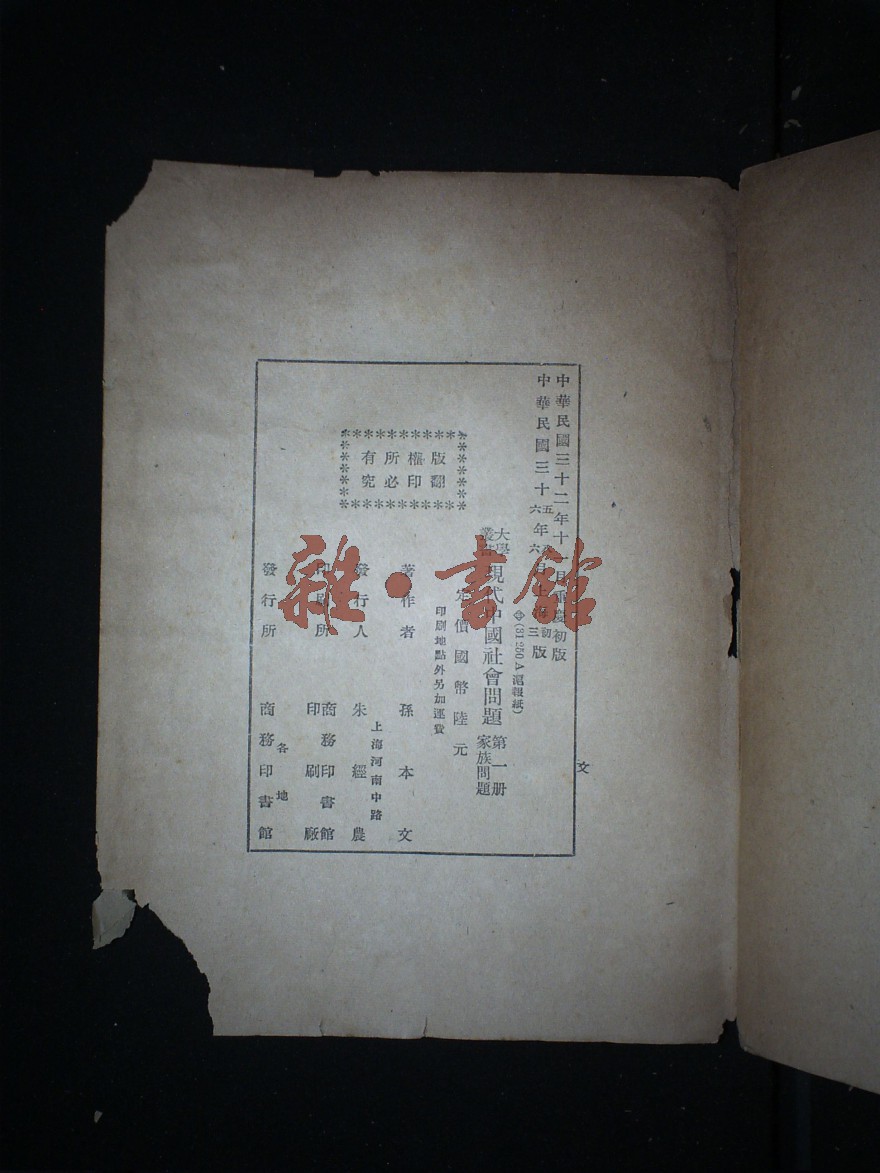 中華民國三十二年十一月重慶初版
中華民國三十五年六月上海初版
六年六三
(31250A滬報紙)
大學叢書
現代中國社會問題
第一册
家族問題
定價國幣陸元
印刷地點外另加運費
版權所有
翻印必究
著作者
孫本文
發行人
上海河南中路
朱經農
印刷所
商務印書館
印刷廠
發行所
各地
商務印書館
文
雜·書館